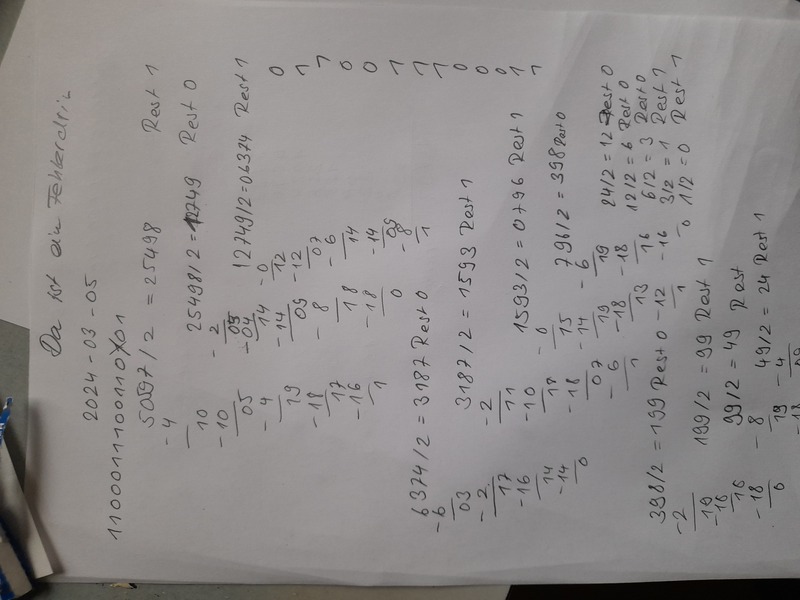 Da ist ein Fehler drin
2024-03-05
1100011100110101
50597/2 = 25498 Rest 1
- 4
10 25498/2 = 12749 Rest 0
- 10 - 2
05 05 12749/2 = 06374 Rest 1
- 4 - 04 - 0
19 14 12 0
- 18 - 14 - 12 1
17 09 07 1
- 16 - 8 - 6 0
1 18 14 0
- 18 - 14 1
0 09 1
- 8 1
1 0
6374/2 = 3187 Rest 0 0
- 6 0
03 3187/2 = 1593 Rest 1 1
- 2 - 2 1
17 11
- 16 - 10 1593/2 = 0796 Rest 1
14 18 - 0
- 14 - 18 15 796/2 = 398 Rest 0
0 07 - 14 - 6
- 6 19 19 24/2 = 12 Rest 0
1 - 18 - 18 12/2 = 6 Rest 0
13 16 6/2 = 3 Rest 0
398/2 = 199 Rest 0 - 12 - 16 3/2 = 1 Rest 1
- 2 1 0 1/2 = 0 Rest 1
19 199/2 = 99 Rest 1
- 16
16 99/2 = 49 Rest
- 18 - 8 49/2 = 24 Rest 1
0 19 - 4
- 18 09